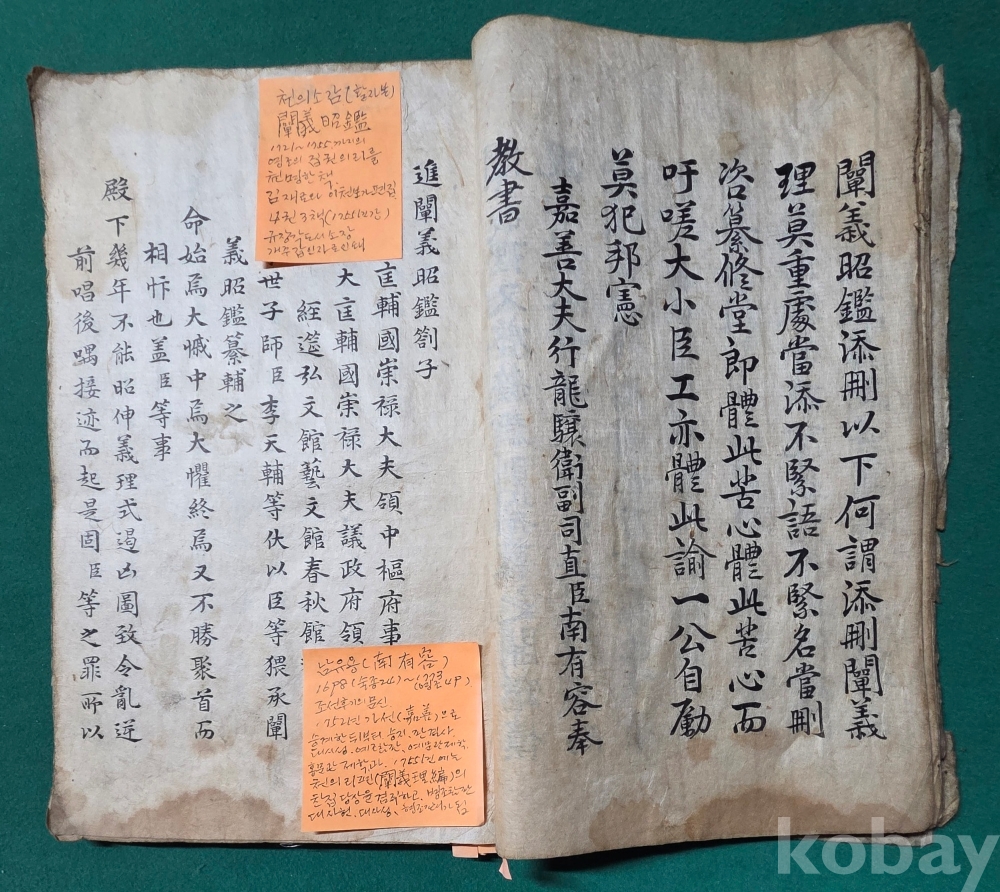 闡義昭鑑添刪以下何謂添刪闡義
理莫重處當添不緊語不緊名當刪
咨纂修堂郎體此苦心體此苦心而
吁嗟大小臣工亦體此諭一公自勵
莫犯邦憲
嘉善大夫行龍驤衛副司直臣南有容奉
教書
進闡義昭鑑劄子
匡輔國崇祿大夫領中樞府事
大匡輔國崇祿大夫議政府領
經筵弘文館藝文館春秋館
世子師臣李天輔等伏以臣等猥承闡
義昭鑑纂輔之
命始焉大慽中焉大懼終焉又不勝聚首而
相忭也盖臣等事
殿下幾年不能昭伸義理式遏凶圖致令亂逆
前唱後喁接迹而起是固臣等之罪所以
천의소감(합자본)
闡義昭鑑
1721~1755까지의
영조의 집천의리를
천명한 책.
김재로와 이천보가 편집
4권 3책(1755년간)
규장각도서 소장
개주갑인자로 인쇄
남유용(南有容)
1698(숙종24)~1773(영조49)
조선후기의 문신
1752년 가선(嘉善)으로
승계한 뒤부터 승지.
대사성. 예조참판. 예문관제학.
홍문관 제학과. 1755년에는
천의리편(闡義理編)의
찬집당상을 겸하고, 병조참판
대사헌. 대사성.
kobay